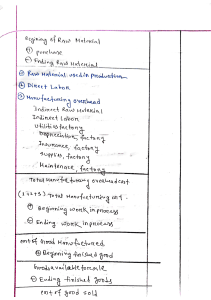 Begining of Raw Material
⊕ purchase
⊖ Ending Raw Material
Raw Material used in production
⊕ Direct Labor
⊕ Manufacturing overhead
Indirect Raw Material
Indirect Labor
Utilities factory
Depreciation, factory
Insurance, factory
Supplies, factory
Maintenance, factory
Total Manufacturing overhead cost
(1+2+3) Total Manufacturing cost.
⊕ Beginning work in process
⊖ Ending work in process
cost of Good Manufactured
⊕ Beginning finished good
Goods available for sale
⊖ Ending finished goods
cost of good sold